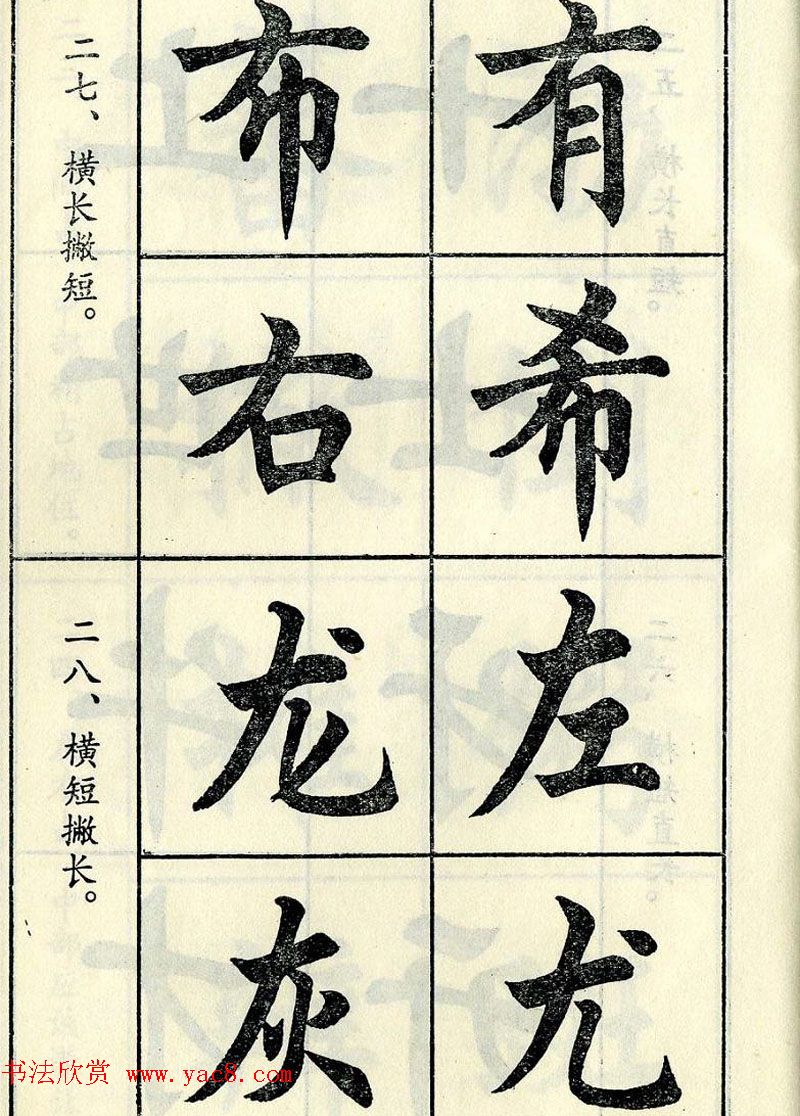 二七、横长撇短。
有布
希右
二八、横短撇长。
左龙
尤灰
书法欣赏 www.yac8.com